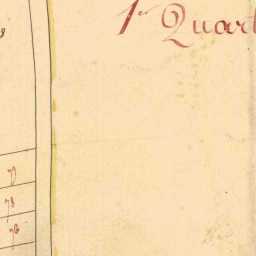 1er Quart
77
78
76